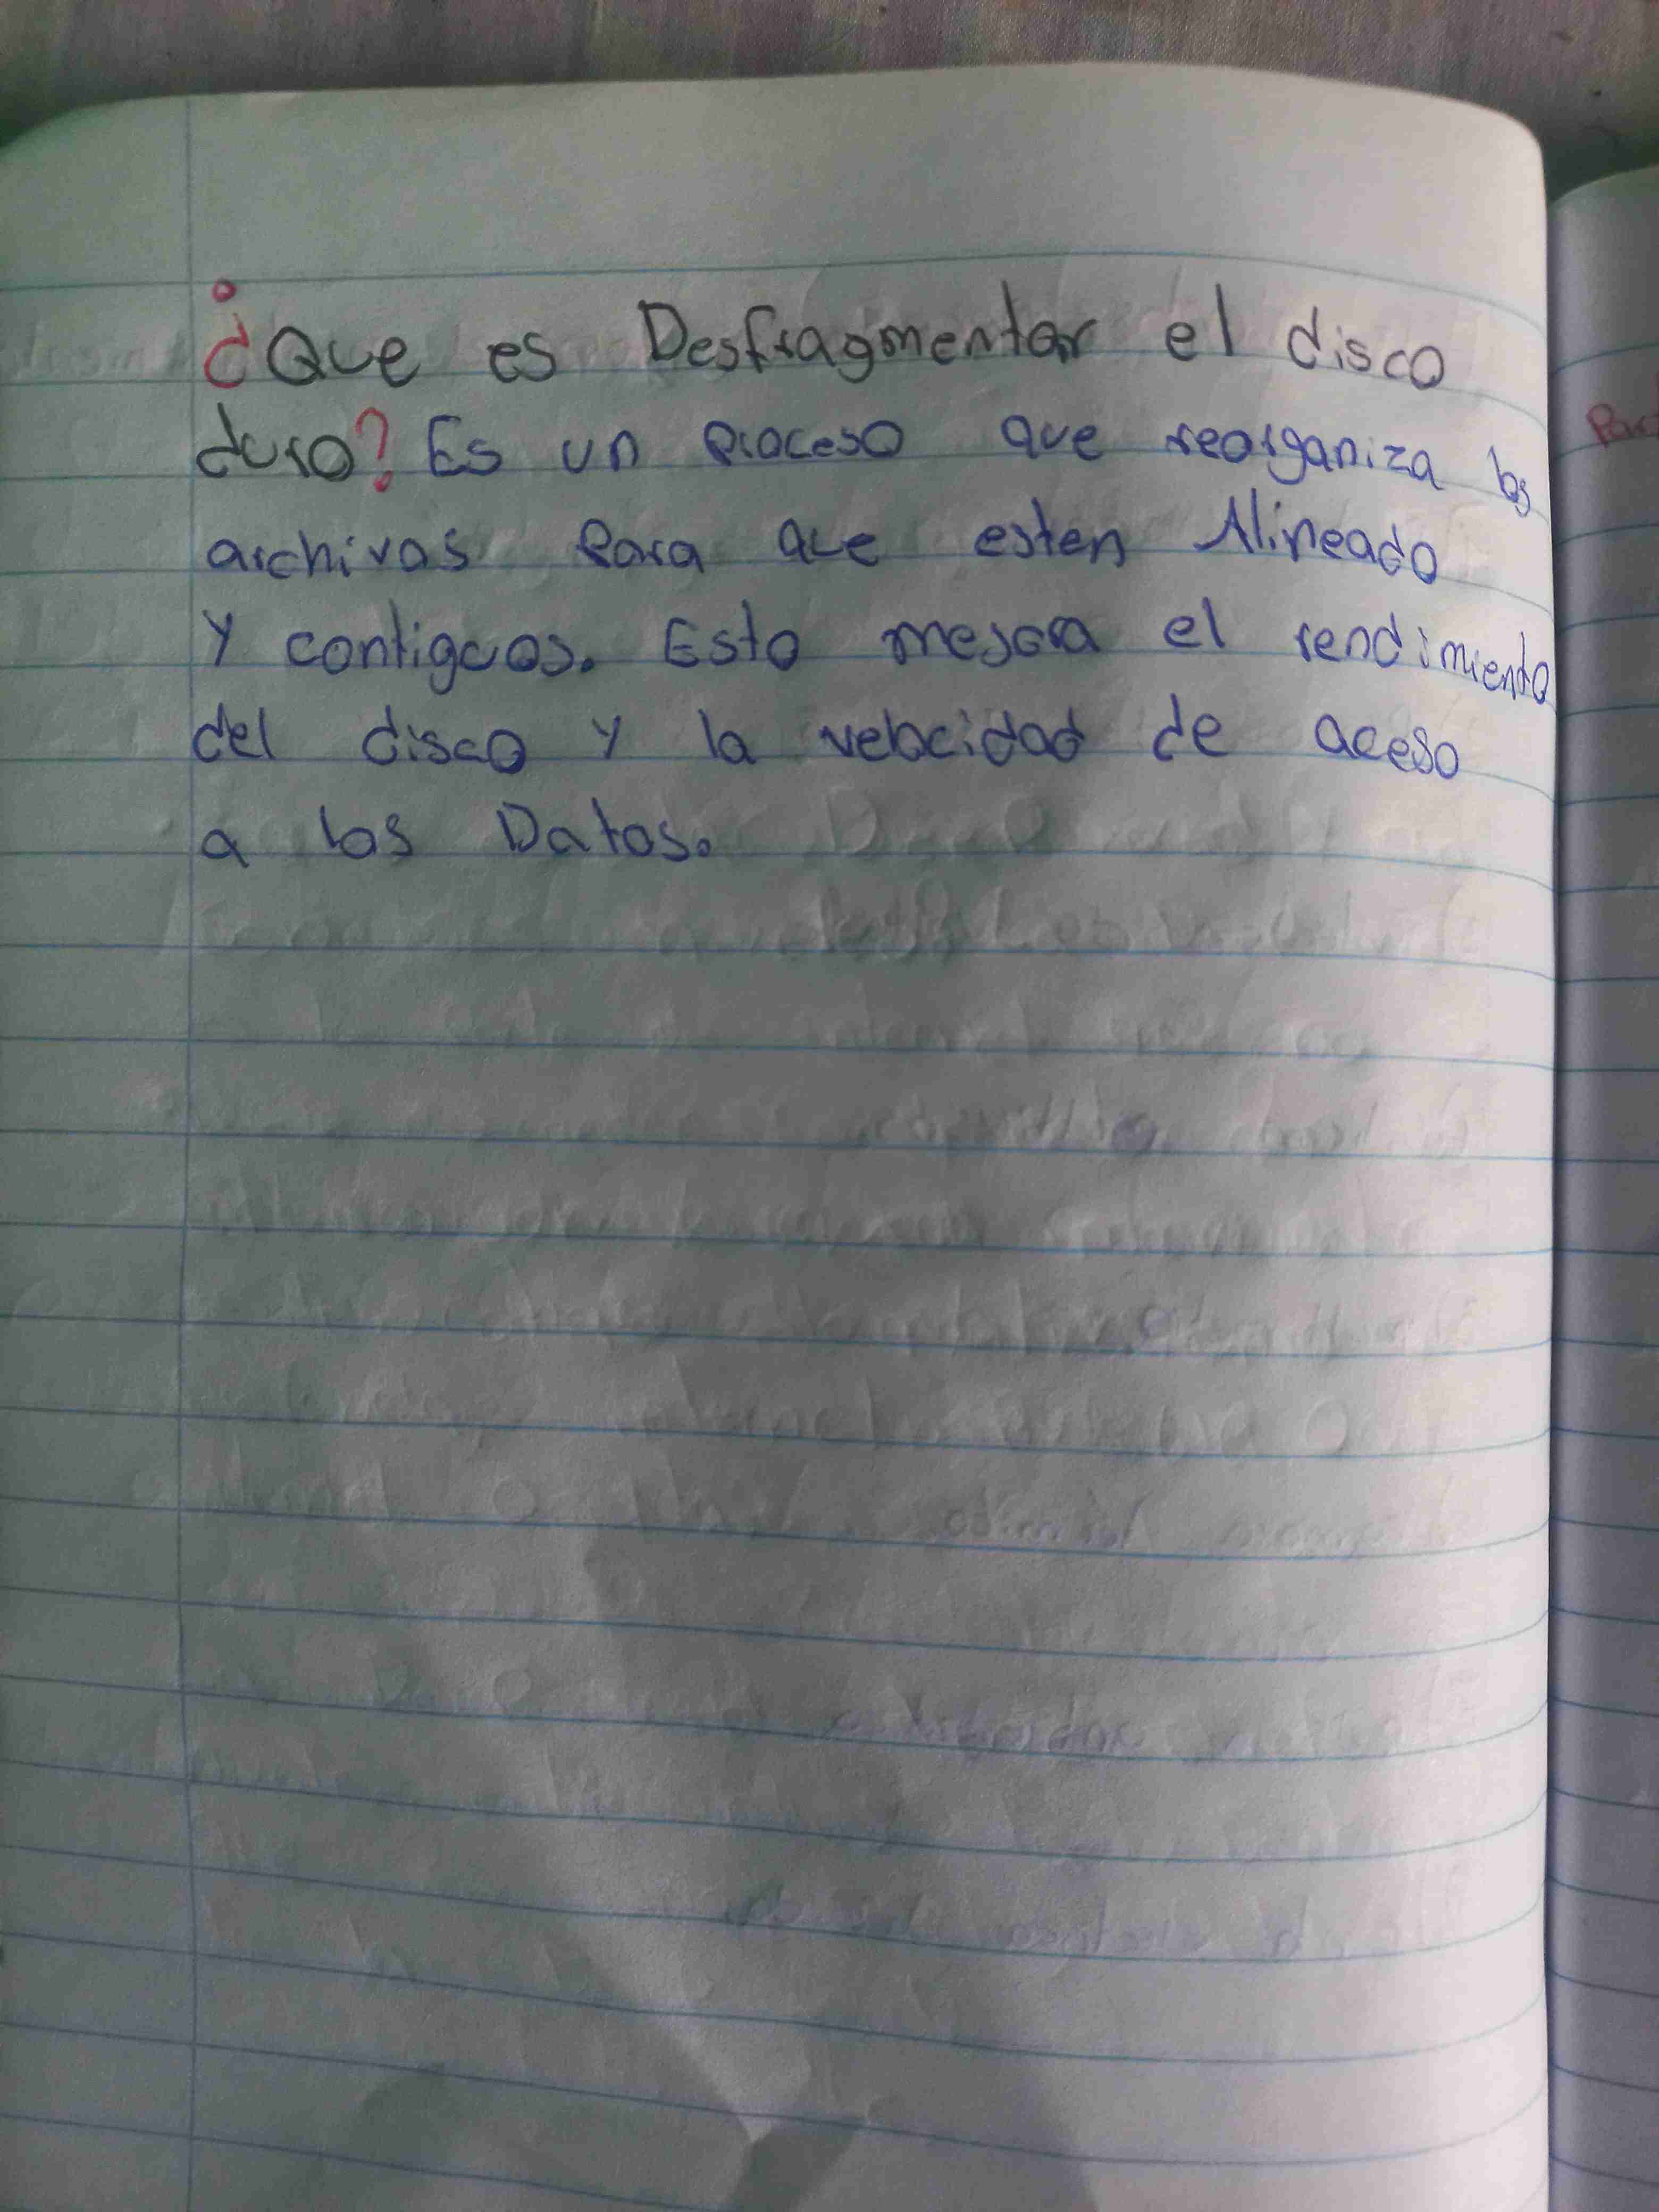 ¿Que es Desfragmentar el disco
duro? Es un proceso que reorganiza los
archivos para que esten Alineado
Y contiguos. Esto mejora el rendimiento
del disco y la velocidad de aceso
a los Datos.